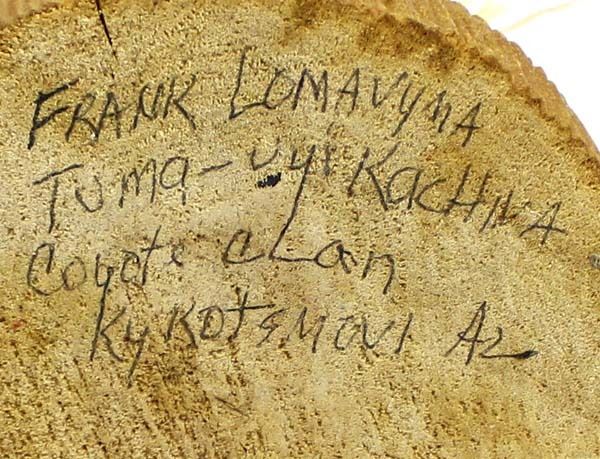 FRANK LOMAVYMA
Tuma-uyi KACHINA
Coyote CLan
KyKotsmovi AZ